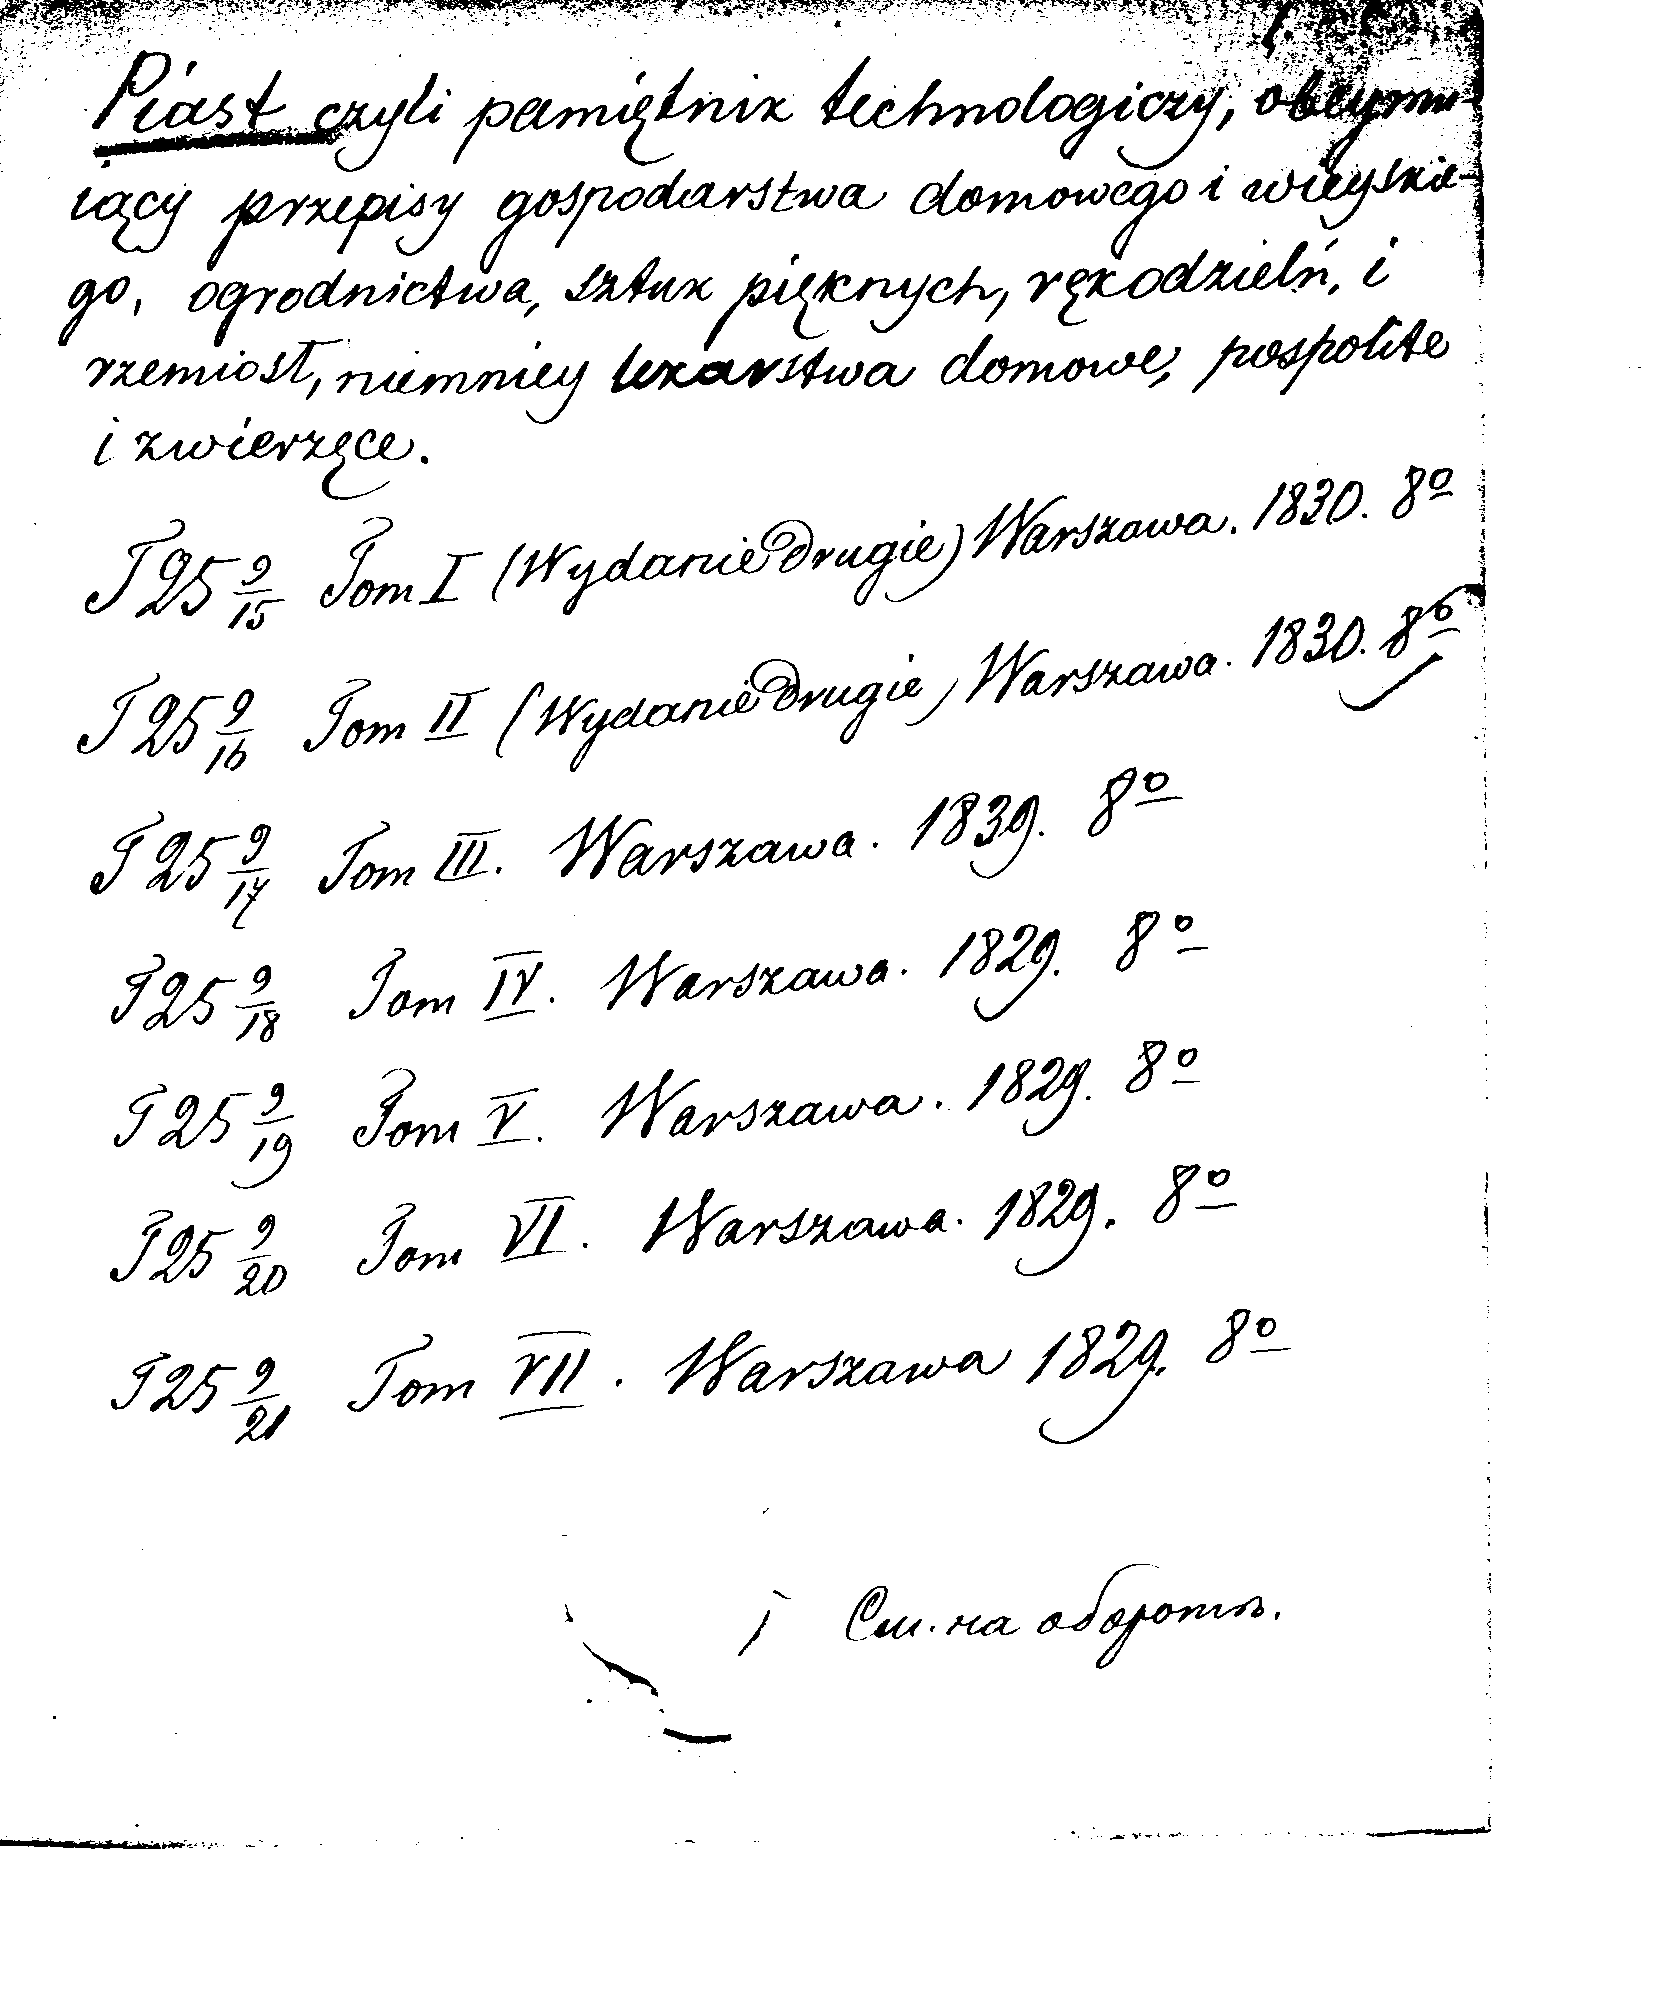 Piast czyli pamiętnik technologiczy, obeymu-
iący przepisy gospodarstwa domowego i wieyskie-
go, ogrodnictwa, sztuk pięknych, rękodzielń, i
rzemiosł, niemniey lekarstwa domowe, pospolite
i zwierzęce.
T 25 9/15 Tom I (Wydanie Drugie) Warszawa. 1830. 8º
T 25 9/16 Tom II (Wydanie Drugie) Warszawa. 1830. 8º
T 25 9/17 Tom III. Warszawa. 1839. 8º
T 25 9/18 Tom IV. Warszawa. 1829. 8º
T 25 9/19 Tom V. Warszawa. 1829. 8º
T 25 9/20 Tom VI. Warszawa. 1829. 8º
T 25 9/21 Tom VII. Warszawa 1829. 8º
См. на оборотѣ.